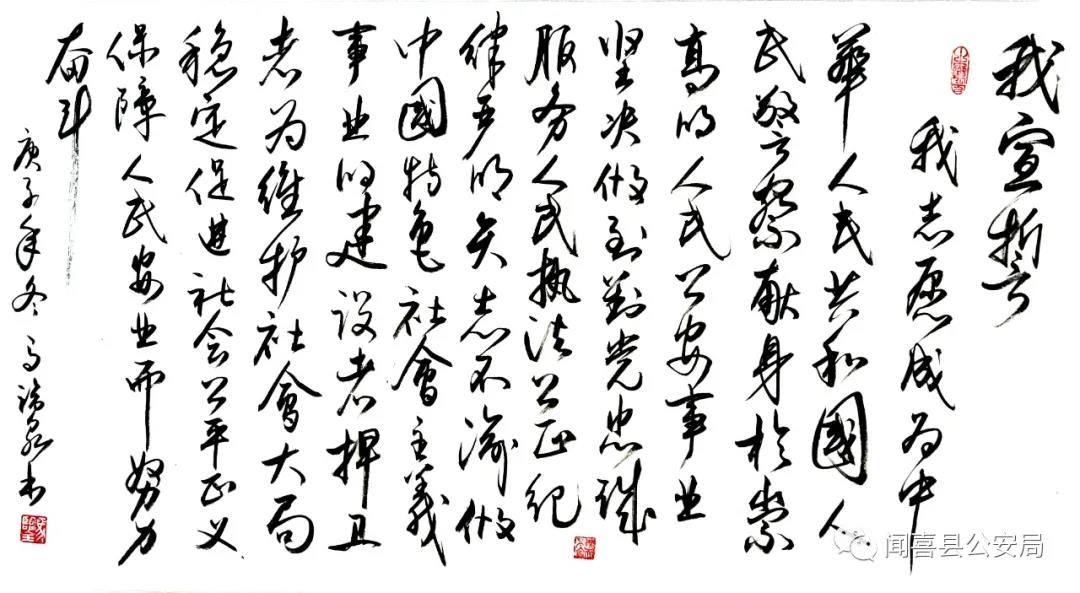 我宣誓
我志愿成为中
華人民共和國人
民警察献身於崇
高的人民公安事业
坚决做到對党忠诚
服务人民執法公正纪
律严明矢志不渝做
中國特色社會主義
事业的建设者捍卫
者为维护社會大局
稳定促进社会公平正义
保障人民安业而努力
奋斗
庚子年冬
闻喜县公安局